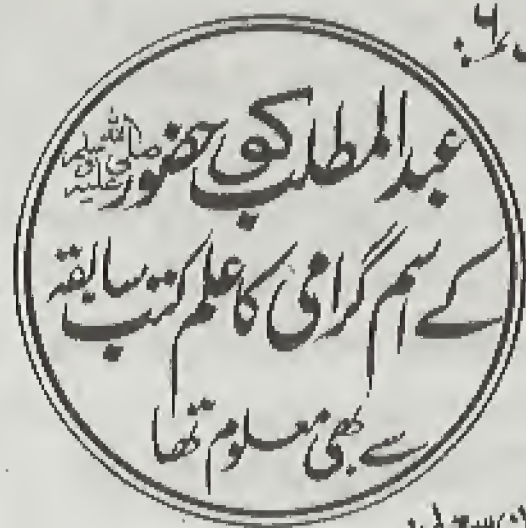 عبدالمطلب کو حضور صلی اللہ علیہ وسلم
کے اسم گرامی کا علم کتب سابقہ
سے بھی معلوم تھا